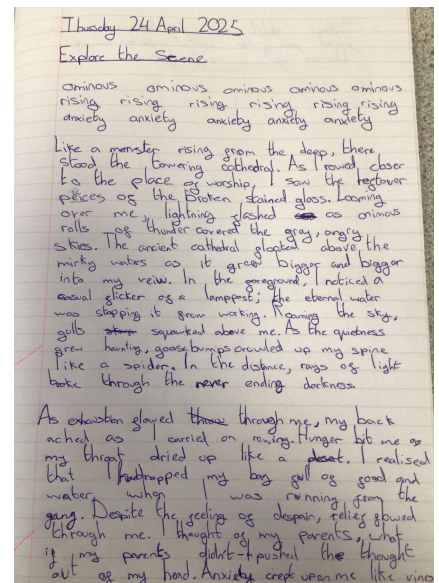 Thursday 24 April 2025
Explore the Scene
ominous ominous ominous ominous ominous
rising rising rising rising rising rising
anxiety anxiety anxiety anxiety anxiety
Like a monster rising from the deep, there
stood the towering cathedral. As I rowed closer
to the place of worship, I saw the leftover
peices of the broken stained glass. Looming
over me, lightning flashed as
rolls of thunder covered the gray, angry
skies. The ancient cathedral floated above the
mirky waters as it grew bigger and bigger
into my veiw. In the foreground, I noticed a
casual flicker of a lamppost; the eternal water
was stopping it from working. Roaming the sky,
gulls squawked above me. As the quietness
grew haunting, goosebumps crawled up my spine
like a spider. In the distance, rays of light
broke through the never ending darkness.
As exhaustion flowed through me, my back
ached as I carried on rowing. Hunger bit me as
my throat dried up like a desert. I realised
that I had dropped my bag full of food and
water when I was running from the
gang. Despite the feeling of despair, relief flowed
through me. I thought of my parents, what
if my parents didn't - I pushed the thought
out of my head. Anxiety crept upon me like vines